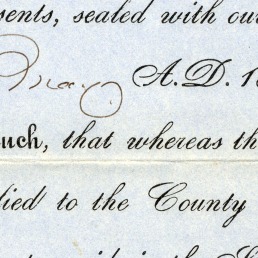 sents, sealed with our
May. A.D. 18
such, that whereas th
lied to the County